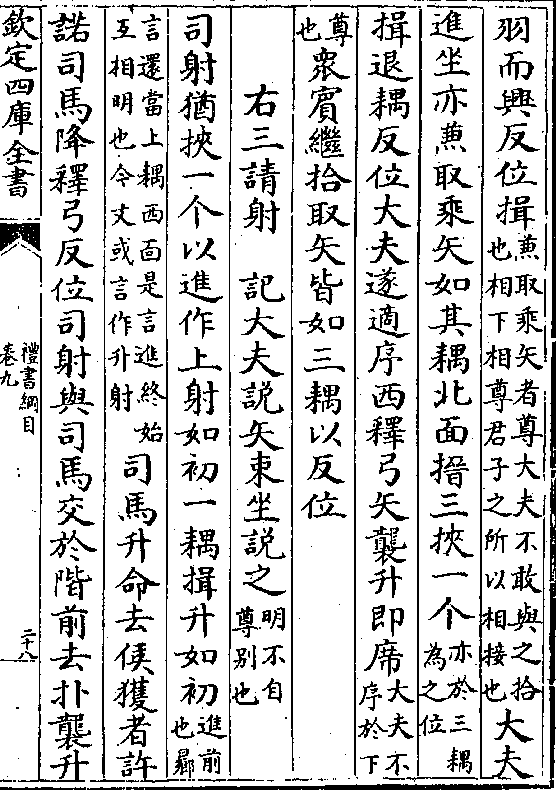 羽而興反位揖兼取乘矢者尊大夫不敢與之拾
也相下相尊君子之所以相接也大夫
進坐亦兼取乘矢如其耦北面搢三挾一个亦於三耦
為之位
揖退耦反位大夫遂適序西釋弓矢襲升即席大夫不
序於下
尊
也衆賓繼拾取矢皆如三耦以反位
右三請射　記大夫説矢束坐説之明不自
尊別也
司射猶挾一个以進作上射如初一耦揖升如初進前
也曏
言還當上耦西面是言進終始
互相明也今文或言作升射司馬升命去侯獲者許
諾司馬降釋弓反位司射與司馬交於階前去扑襲升
欽定四庫全書
禮書綱目
卷九
二十八